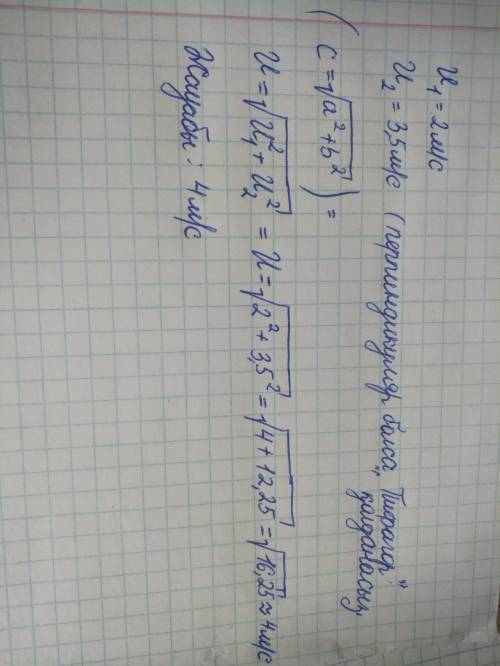 u₁ = 2 м/с
u₂ = 3,5 м/с (перпиндикуляр болса, "Пифагор"
қолданасың,
(c = √a² + b²) =
u = √u₁² + u₂² = u = √2² + 3,5² = √4 + 12,25 = √16,25 ≈ 4 м/с
Жауабы: 4 м/с